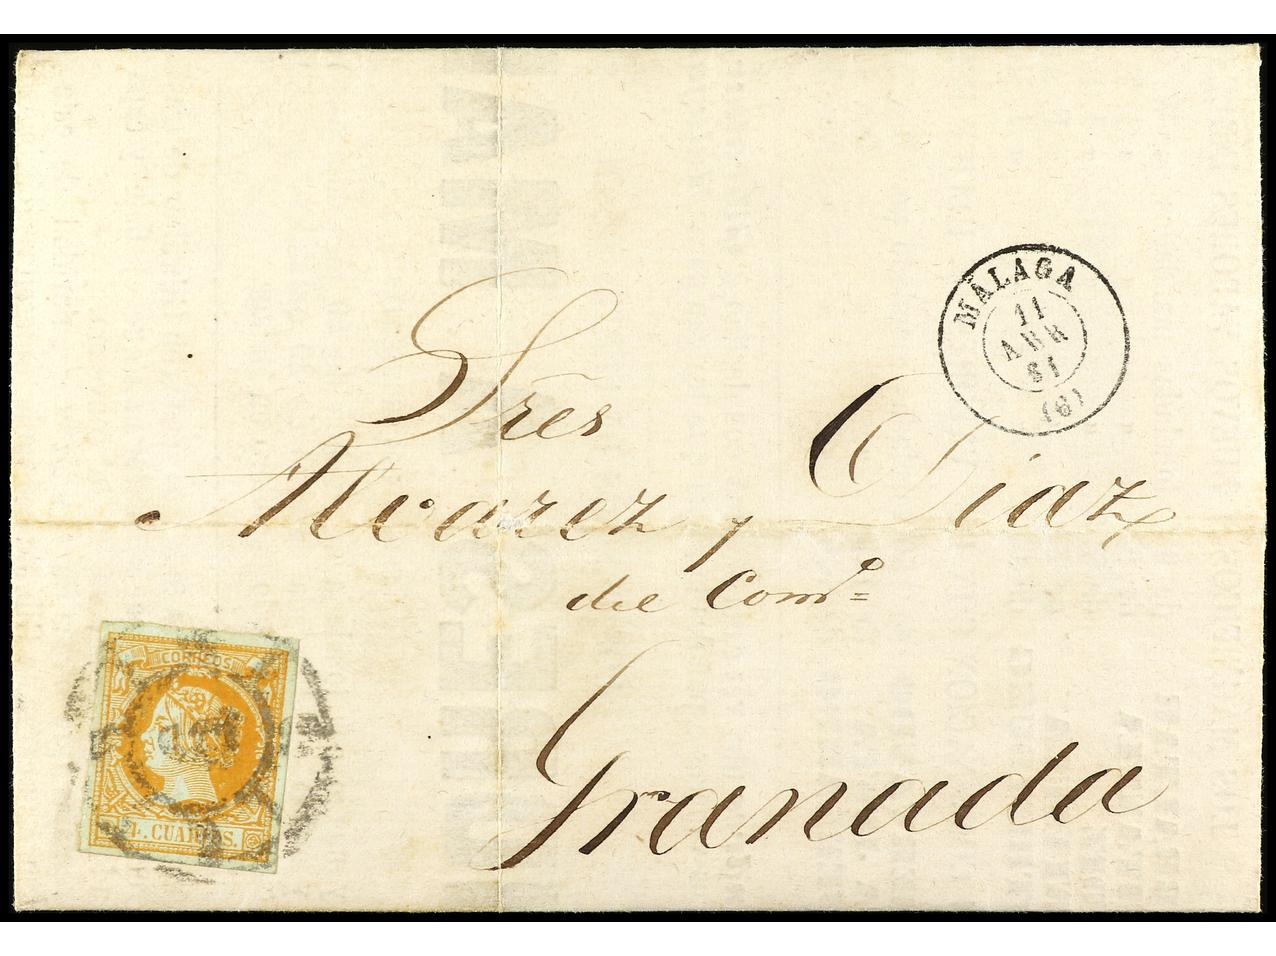 MÁLAGA
11
ABR
61
(6)
Sres
Alvarez y Diaz
del Comº
Granada
CORREOS
4. CUARTOS.